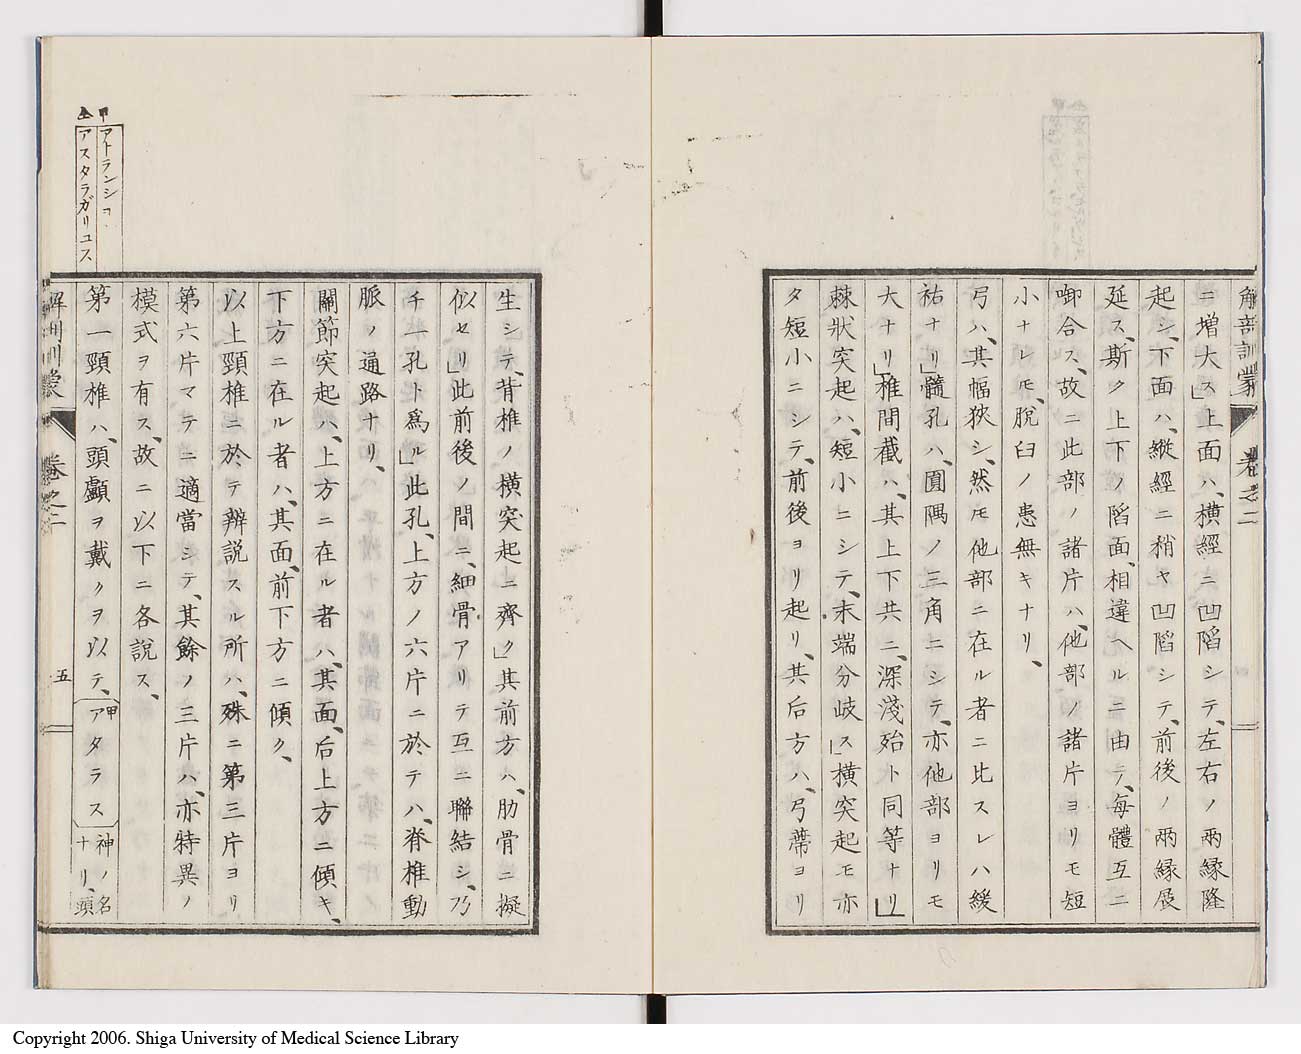 解剖訓蒙 卷之二
ニ增大ス」上面ハ、橫經ニ凹陷シテ、左右ノ兩緣隆
起シ、下面ハ、縱經ニ稍ヤ凹陷シテ、前後ノ兩緣展
延ス、斯ク上下ノ陷面、相違ヘルニ由テ、每體互ニ
啣合ス、故ニ此部ノ諸片ハ、他部ノ諸片ヨリモ短
小ナレモ、脫臼ノ患無キナリ、
弓ハ、其幅狹シ、然モ他部ニ在ル者ニ比スレハ緩
祐ナリ」髓孔ハ、圓隅ノ三角ニシテ、亦他部ヨリモ
大ナリ」椎間截ハ、其上下共ニ、深淺殆ト同等ナリ」
棘狀突起ハ、短小ニシテ、末端分岐ス」橫突起モ亦
タ短小ニシテ、前後ヨリ起リ、其后方ハ、弓蔕ヨリ
生シテ、背椎ノ橫突起ニ齊ク」其前方ハ、肋骨ニ擬
似セリ」此前後ノ間ニ、細骨アリテ互ニ聯結シ、乃
チ一孔ト爲ル」此孔、上方ノ六片ニ於テハ、脊椎動
脈ノ通路ナリ、
關節突起ハ、上方ニ在ル者ハ、其面、后上方ニ傾キ、
下方ニ在ル者ハ、其面、前下方ニ傾ク、
以上頸椎ニ於テ辨説スル所ハ、殊ニ第三片ヨリ
第六片マテニ適當シテ、其餘ノ三片ハ、亦特異ノ
模式ヲ有ス、故ニ以下ニ各說ス、
第一頸椎ハ、頭顱ヲ戴クヲ以テ、甲アタラス神ノ名ナリ、頭
甲アトランシヨ
仝アスタラガリユス
解剖訓蒙 卷之二 五
Copyright 2006. Shiga University of Medical Science Library